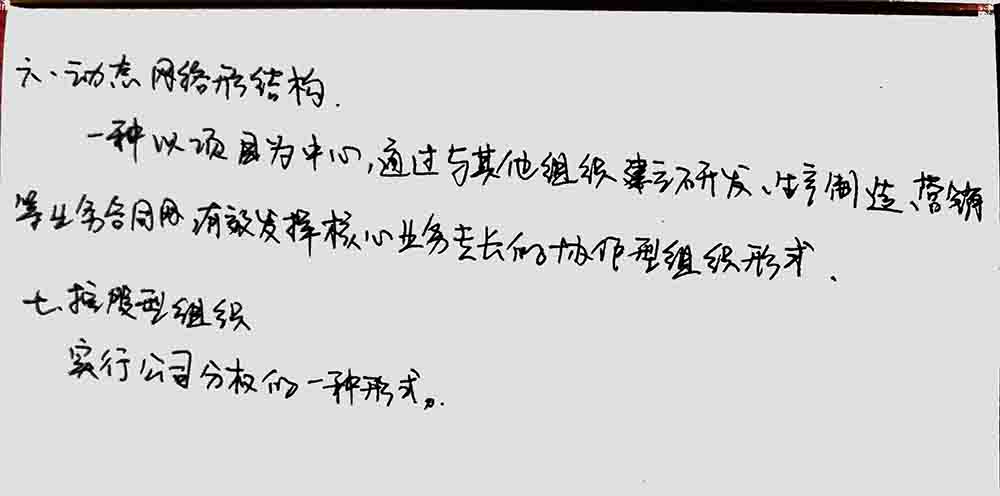 六、动态网络形结构.
一种以项目为中心,通过与其他组织建立研开发、生产制造、营销
等业务合同网,有效发挥核心业务专长的协作型组织形式.
七.控股型组织
实行公司分权的一种形式。